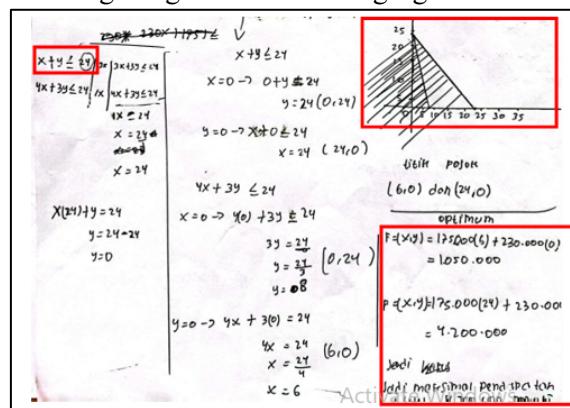 x+y ≤ 24 | 3x | 3x+3y ≤ 24
4x+3y ≤ 24 | 1x | 4x+3y ≤ 24
x = 24
x = 24
x(24)+y = 24
y = 24-24
y = 0
x+y ≤ 24
x=0 → 0+y ≤ 24
y = 24 (0,24)
y=0 → x+0 ≤ 24
x = 24 (24,0)
4x+3y ≤ 24
x=0 → 4(0)+3y ≤ 24
3y = 24
y = 24/3 (0,24)
y = 8
y=0 → 4x + 3(0) = 24
4x = 24
x = 24/4 (6,0)
x = 6
25
20
5 10 15 20 25 30 35
titik pojok
(6,0) dan (24,0)
optimum
F=(x,y) = 175.000(6) + 230.000(0)
= 1.050.000
F=(x,y)=175.000(24) + 230.000
= 4.200.000
Jadi
Jadi maksimal pendapatan
Activate Windows